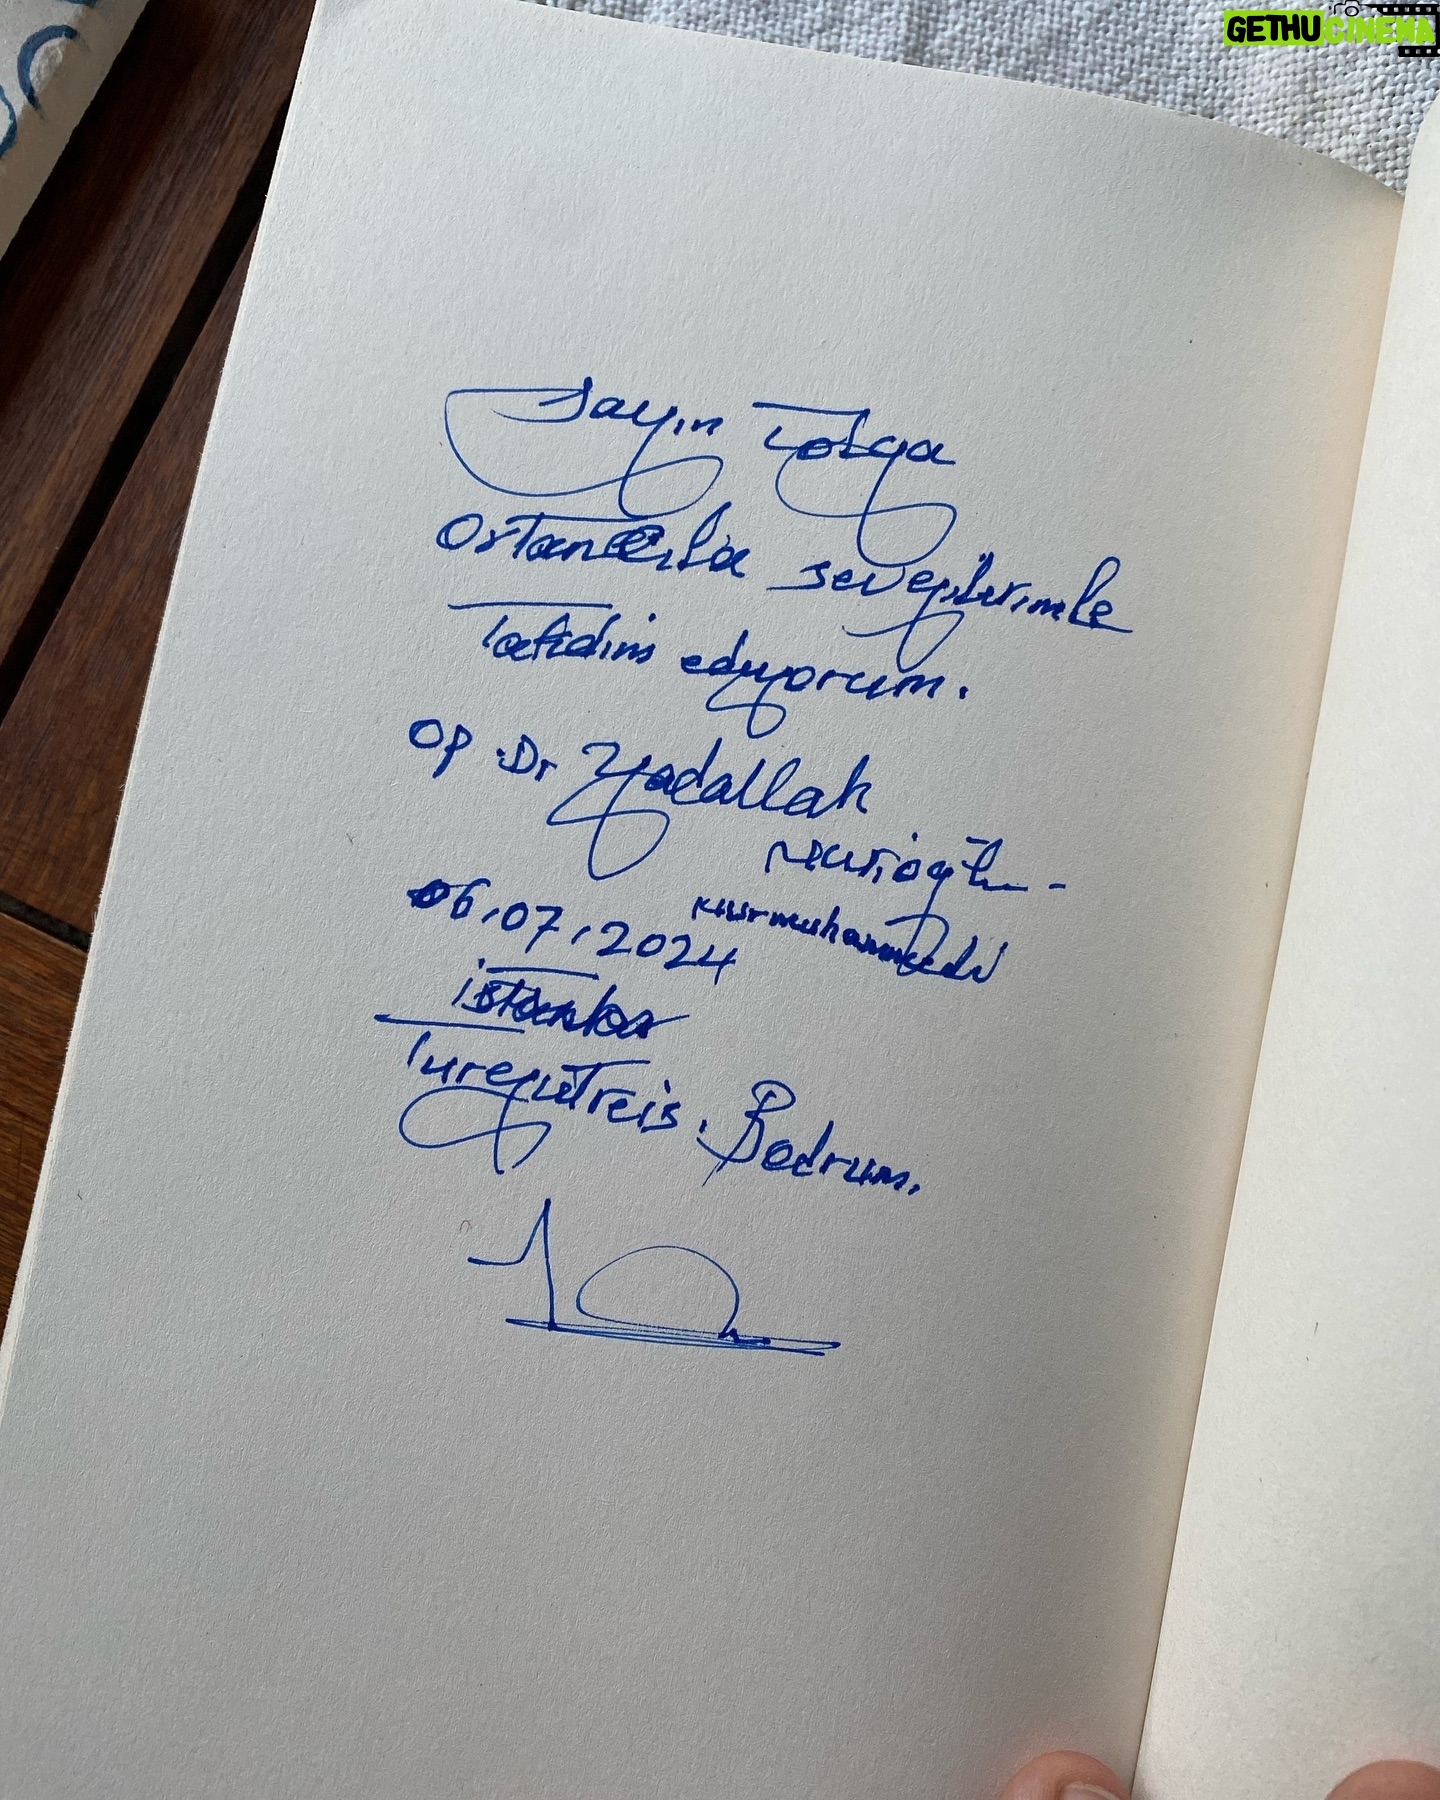 GETHUCINEMA
Sayın Tolga
sevgilerimle
Takdim ediyorum.
Op. Dr Yadallah
Nurioğlu -
Nurmuhammedi
06.07.2024
Turgutreis. Bodrum.